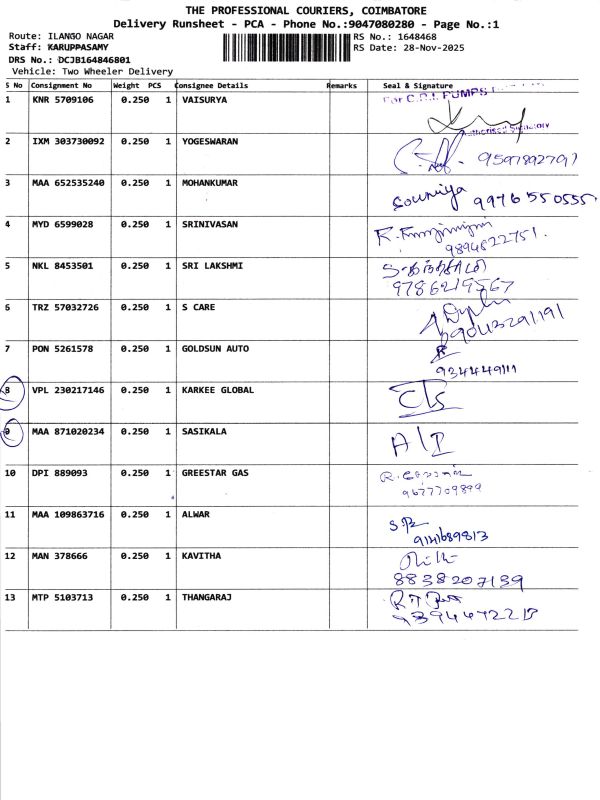 THE PROFESSIONAL COURIERS, COIMBATORE
Delivery Runsheet - PCA - Phone No.:9047080280 - Page No.:1
Route: ILANGO NAGAR
RS No.: 1648468
Staff: KARUPPASAMY
RS Date: 28-Nov-2025
DRS No.: DCJB164846801
Vehicle: Two Wheeler Delivery
S No Consignment No Weight PCS Consignee Details Remarks Seal & Signature
1 KNR 5709106 0.250 1 VAISURYA For C.R.I. PUMPS
Authorised Signatory
2 IXM 303730092 0.250 1 YOGESWARAN 9597892797
3 MAA 652535240 0.250 1 MOHANKUMAR Sowmiya 9976550555
4 MYD 6599028 0.250 1 SRINIVASAN
9894822751.
5 NKL 8453501 0.250 1 SRI LAKSHMI
9786219567
6 TRZ 57032726 0.250 1 S CARE
9043291191
7 PON 5261578 0.250 1 GOLDSUN AUTO
934449111
8 VPL 230217146 0.250 1 KARKEE GLOBAL
9 MAA 871020234 0.250 1 SASIKALA
10 DPI 889093 0.250 1 GREESTAR GAS
9677709899
11 MAA 109863716 0.250 1 ALWAR
9141689813
12 MAN 378666 0.250 1 KAVITHA
8838207139
13 MTP 5103713 0.250 1 THANGARAJ